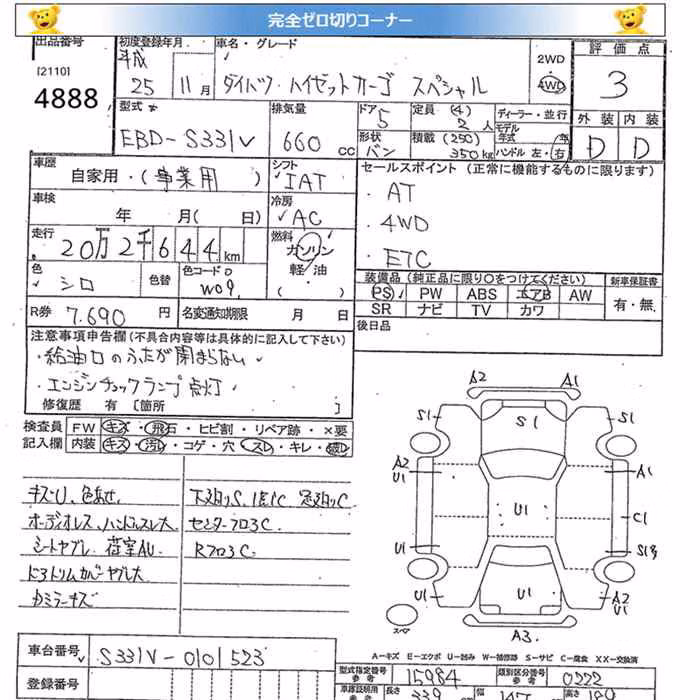 完全ゼロ切りコーナー
出品番号
[2110]
4888
初度登録年月
平成
25 11月
車名・グレード
ダイハツ・ハイゼットカーゴ スペシャル
2WD
4WD
評価点
3
外装 内装
D D
型式
EBD-S331V
排気量
660 cc
ドア
5
形状
バン
定員 (4)
2 人
積載 (250)
350kg
ディーラー・並行
モデル
年式 年
ハンドル 左・右
車歴
自家用・(事業用)
シフト
IAT
車検
年 月(日)
冷房
AC
走行
20万2千644km
燃料
ガソリン
軽・油
( )
色
シロ
色替
色コードNo
W09
R券 7.690 円
名変通知期限 月 日
セールスポイント (正常に機能するものに限ります)
・AT
・4WD
・ETC
装備品(純正品に限り○をつけてください)
PS PW ABS エアB AW
SR ナビ TV カワ
新車保証書
有・無
後日品
注意事項申告欄(不具合内容等は具体的に記入して下さい)
・給油口のふたが閉まらない
・エンジンチェックランプ点灯
修復歴 有 [箇所 ]
検査員 FW キズ・飛石・ヒビ割・リペア跡・×要
記入欄 内装 キズ・汚れ・コゲ・穴・スレ・キレ・破れ
キズU、色あせ
オーディオレス、ハンドルスレ大
シートヤブレ 荷室AU
ドアトリムカバーヤブレ大
カガミラーキズ
下廻りS、1部C 足廻りC
センターフロアC
RフロアC
A2 A1
S1 S1 S1
A2
U1 A1
U1 C1
U1 S1
U1 A2
U1
スペア
A3
A-キズ E-エクボ U-凹み W-補修跡 S-サビ C-腐食 XX-交換済
車台番号 S331V-0101523
登録番号
型式指定番号
参考 15984
類別区分番号
参考 0222
車庫証明用
参考
長さ 339
幅 147
高さ